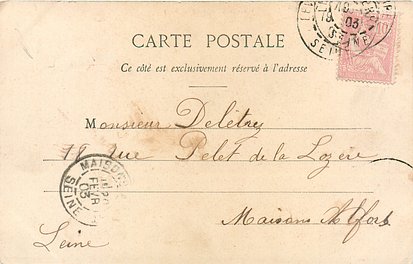 CARTE POSTALE
Ce côté est exclusivement réservé à l'adresse
Monsieur Delétrez
18 rue Pelet de la Lozère
Maisons Alfort
Seine
SEINE
03
SEINE
FEVR
03